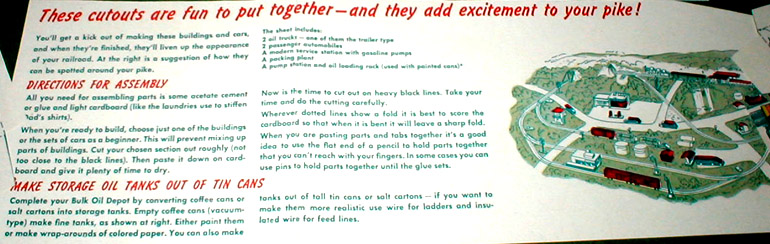 These cutouts are fun to put together—and they add excitement to your pike!
You'll get a kick out of making these buildings and cars,
and when they're finished, they'll liven up the appearance
of your railroad. At the right is a suggestion of how they
can be spotted around your pike.
The sheet includes:
2 oil trucks — one of them the trailer type
2 passenger automobiles
A modern service station with gasoline pumps
A packing plant
A pump station and oil loading rack (used with painted cans)*
DIRECTIONS FOR ASSEMBLY
All you need for assembling parts is some acetate cement
or glue and light cardboard (like the laundries use to stiffen
Dad's shirts).
When you're ready to build, choose just one of the buildings
or the sets of cars as a beginner. This will prevent mixing up
parts of buildings. Cut your chosen section out roughly (not
too close to the black lines). Then paste it down on card-
board and give it plenty of time to dry.
Now is the time to cut out on heavy black lines. Take your
time and do the cutting carefully.
Wherever dotted lines show a fold it is best to score the
cardboard so that when it is bent it will leave a sharp fold.
When you are pasting parts and tabs together it's a good
idea to use the flat end of a pencil to hold parts together
that you can't reach with your fingers. In some cases you can
use pins to hold parts together until the glue sets.
MAKE STORAGE OIL TANKS OUT OF TIN CANS
Complete your Bulk Oil Depot by converting coffee cans or
salt cartons into storage tanks. Empty coffee cans (vacuum-
type) make fine tanks, as shown at right. Either paint them
or make wrap-arounds of colored paper. You can also make
tanks out of tall tin cans or salt cartons — if you want to
make them more realistic use wire for ladders and insu-
lated wire for feed lines.